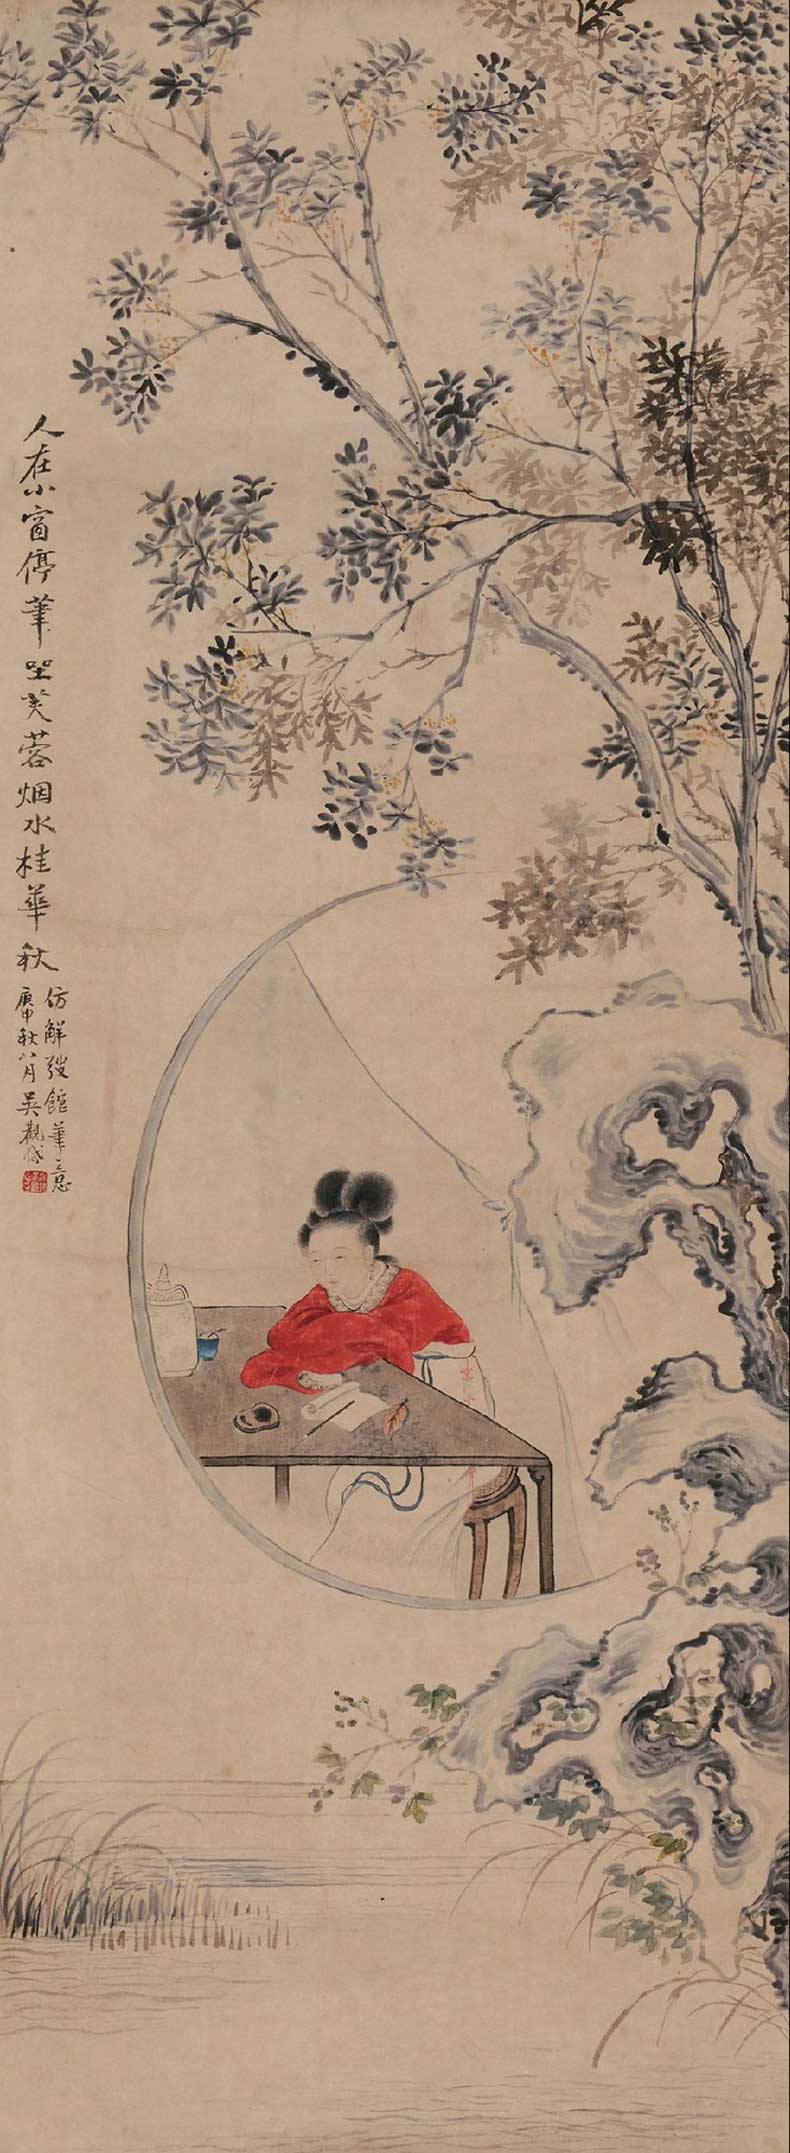 人在小窗停筆坐芙蓉烟水桂華秋
仿解弢館筆意
庚申秋八月吳觀岱